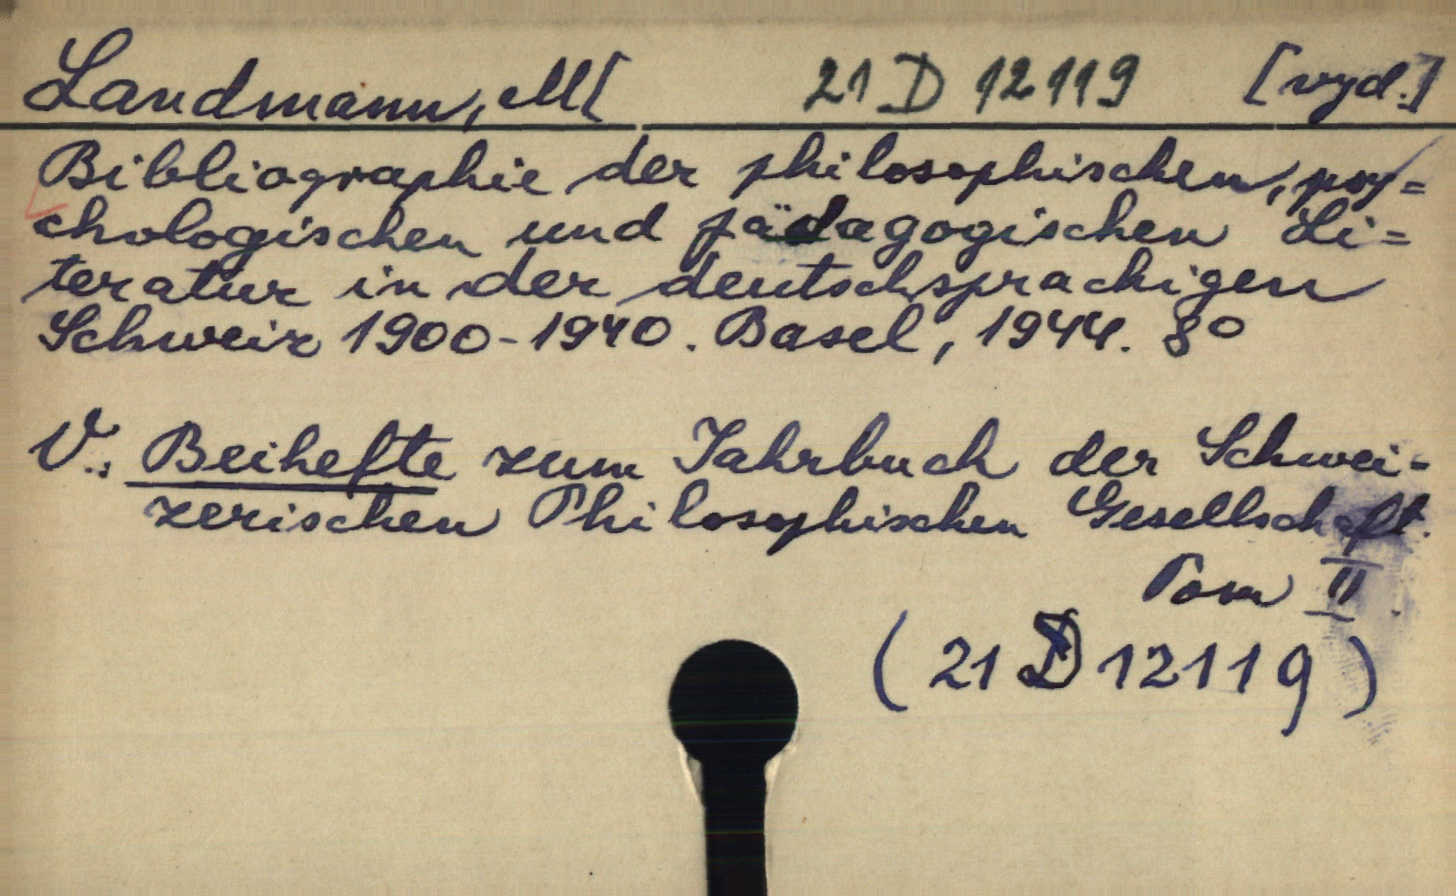 Landmann, M[ 21 D 12119 [vyd.]
Bibliographie der philosophischen, psy=
chologischen und pädagogischen Li=
teratur in der deutschsprachigen
Schweiz 1900-1940. Basel, 1944. 8°
V.: Beihefte zum Jahrbuch der Schwei-
zerischen Philosophischen Gesellschaft.
Tom II.
(21 D 12119)